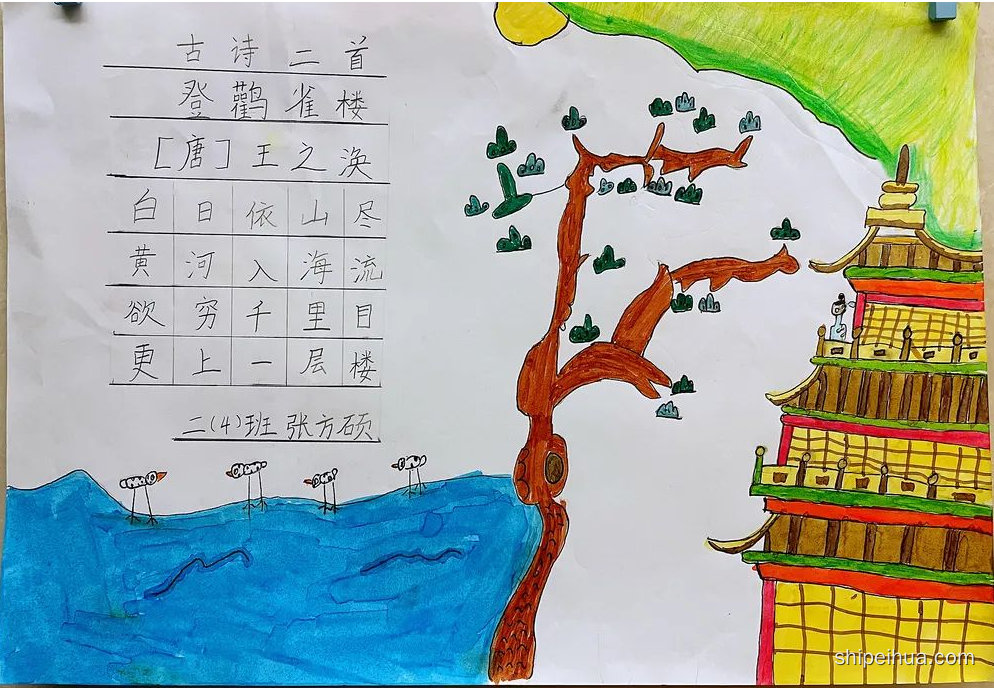 古诗二首
登鹳雀楼
[唐]王之涣
白日依山尽
黄河入海流
欲穷千里目
更上一层楼
二(4)班 张方硕
shipeihua.com